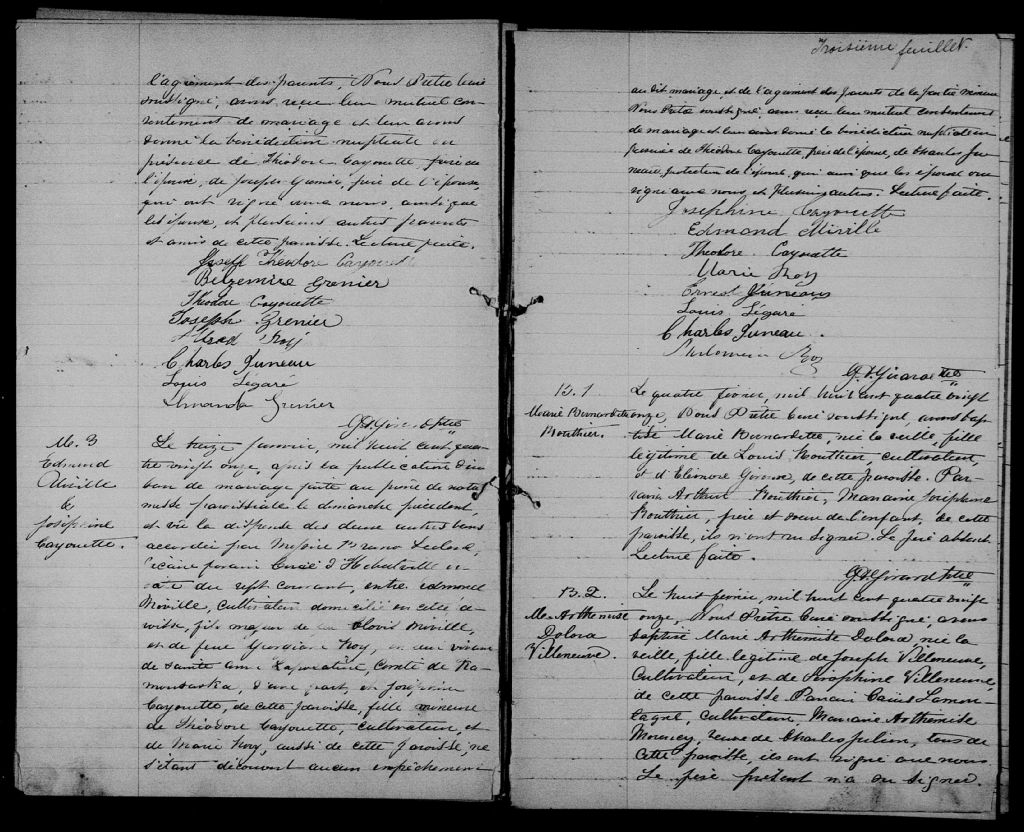 l'agrément des parents, Nous Prêtre Curé
soussigné, avons reçu leur mutuel con-
sentement de mariage et leur avons
donné la bénédiction nuptiale en
présence de Théodore Cayouette, père de
l'époux, de Joseph Grenier, père de l'épouse,
qui ont signé avec nous, ainsi que
les époux, et plusieurs autres parents
et amis de cette paroisse. Lecture faite.
Joseph Theodore Cayouette
Belzemire Grenier
Théodore Cayouette
Joseph Grenier
Alfred Roy
Charles Juneau
Louis Légaré
Amanda Grenier
Ptre
M. 3
Edmund
Miville
&
Josephine
Cayouette.
Le seize janvier, mil huit cent qua-
tre vingt onze, après la publication d'un
ban de mariage faite au prône de notre
messe paroissiale le dimanche précédent,
et vu la dispense des deux autres bans
accordée par Messire Bruno Leclerc,
Vicaire forain Curé d'Hébertville en
date du sept courant, entre Edmond
Miville, Cultivateur domicilié en cette pa-
roisse, fils majeur de Clovis Miville,
et de feue Georgiana Roy, en son vivant
de Sainte Anne Lapocatière, Comté de Ka-
mouraska, d'une part, et Joséphine
Cayouette, de cette paroisse, fille mineure
de Théodore Cayouette, cultivateur, et
de Marie Roy, aussi de cette paroisse, ne
s'étant découvert aucun empêchement
Troisième feuillet.
au dit mariage, et de l'agrément des parents de la partie mineure
Nous Prêtre soussigné, avons reçu leur mutuel consentement
de mariage et leur avons donné la bénédiction nuptiale en
présence de Théodore Cayouette, père de l'épouse, de Charles Ju-
neau, de l'époux, qui ainsi que les époux ont
signé avec nous, et plusieurs autres. Lecture faite.
Josephine Cayouette
Edmond Miville
Théodore Cayouette
Marie Roy
Ernest Juneau
Louis Légaré
Charles Juneau.
Philomène Roy
Girard Ptre
B. 1
Marie Bernardette
Bouthier.
Le quatre février, mil huit cent quatre vingt
onze, Nous Prêtre Curé soussigné, avons bap-
tisé Marie Bernardette, née la veille, fille
légitime de Louis Bouthier, cultivateur,
et d'Eléonore, de cette paroisse. Par-
rain Arthur Bouthier, Marraine Joséphine
Bouthier, frère et soeur de l'enfant, de cette
paroisse, ils n'ont su signer. Le père absent.
Lecture faite.
Girard Ptre
B. 2.
M. Arthémise
Dolora
Villeneuve.
Le huit février, mil huit cent quatre vingt
onze, Nous Prêtre Curé soussigné, avons
baptisé Marie Arthémise Dolora née la
veille, fille légitime de Joseph Villeneuve,
Cultivateur, et de Séraphine Villeneuve,
de cette paroisse. Parrain Lamon-
tagne, cultivateur, Marraine Arthémise
veuve de Charles Julien, tous de
cette paroisse, ils ont signé avec nous.
Le père présent n'a su signer.